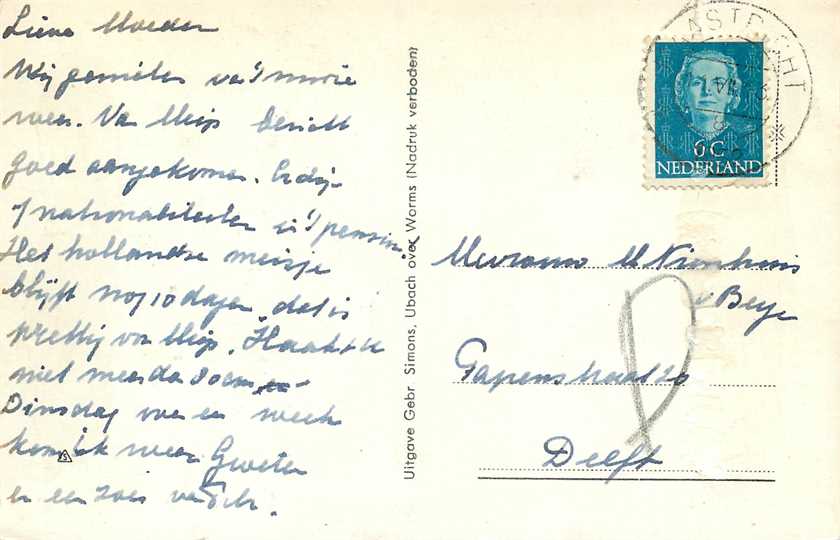 Lieve Moeder
Wij genieten va 't mooie
weer. Van Miep bericht
goed aangekomen. Er zijn
7 nationaliteiten in 't pension
Het hollandse meisje
blijft nog 10 dagen, dat is
prettig voor Miep. Haast u
niet meer da
Dinsdag over een week
kom ik weer. Groeten
en een zoen van
Uitgave Gebr. Simons, Ubach over Worms (Nadruk verboden)
MAASTRICHT
6 C
NEDERLAND
Mevrouw M Nienhuis
v Beye
Papenstraat
Delft